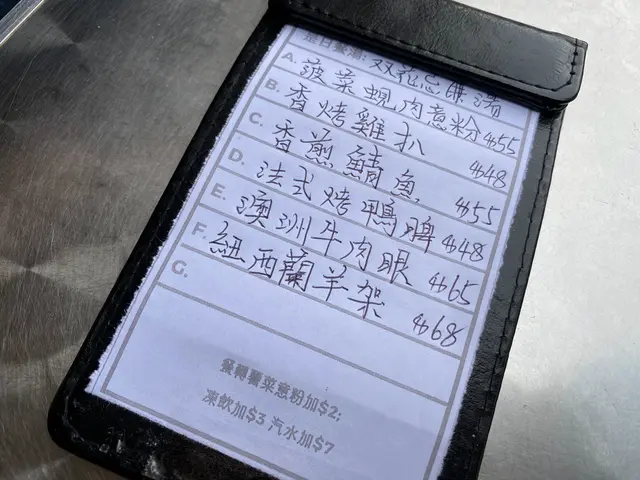 是日餐湯: 双花忌廉湯
A. 菠菜蜆肉意粉 $55
B. 香烤雞扒 $48
C. 香煎鯖魚 $55
D. 法式烤鴨脾 $48
E. 澳洲牛肉眼 $65
F. 紐西蘭羊架 $68
G.
餐轉薯菜意粉加$2;
凍飲加$3 汽水加$7